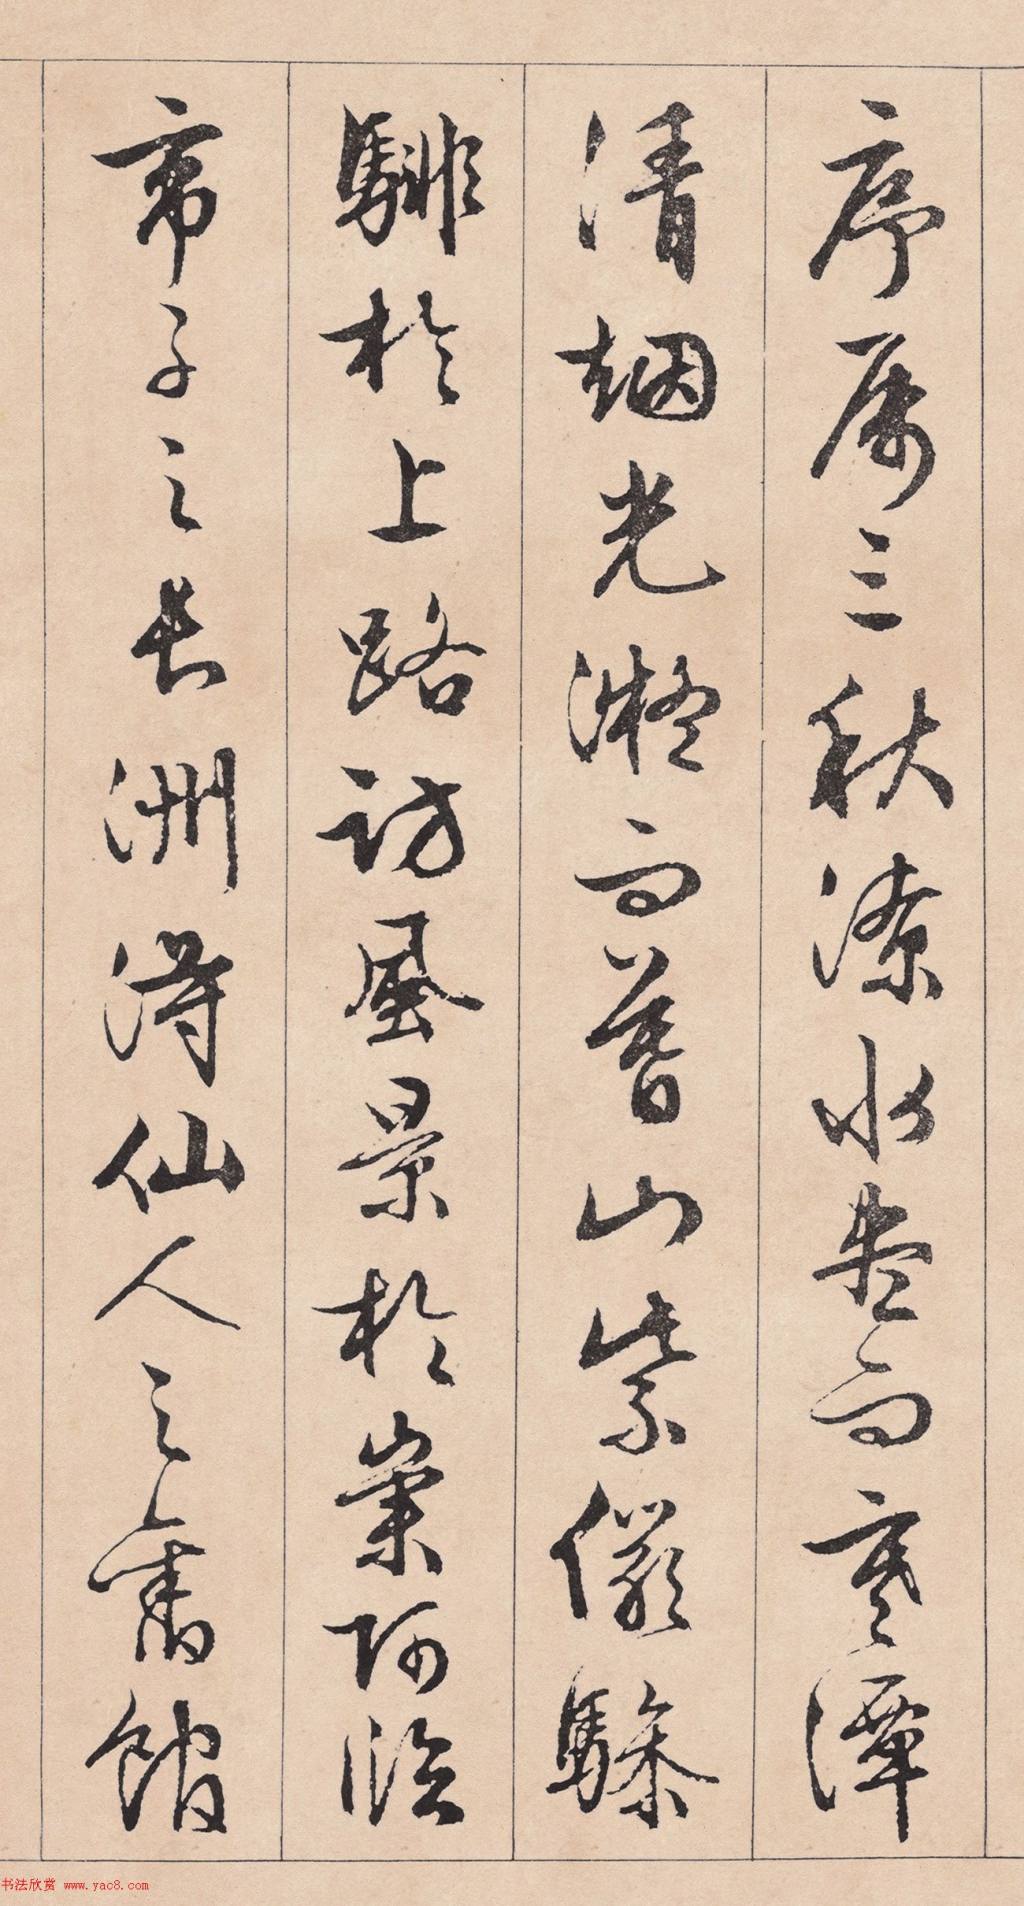 序属三秋潦水尽而寒潭
清烟光凝而暮山紫俨骖
騑於上路访风景於崇阿临
帝子之长洲得仙人之旧馆
书法欣赏 www.yac8.com